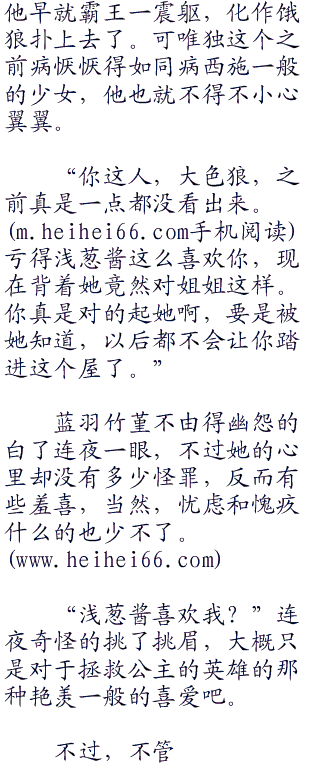 他早就霸王一震躯，化作饿
狼扑上去了。可唯独这个之
前病恹恹得如同病西施一般
的少女，他也就不得不小心
翼翼。
“你这人，大色狼，之
前真是一点都没看出来。
(m.heihei66.com手机阅读)
亏得浅葱酱这么喜欢你，现
在背着她竟然对姐姐这样。
你真是对的起她啊，要是被
她知道，以后都不会让你踏
进这个屋了。”
蓝羽竹堇不由得幽怨的
白了连夜一眼，不过她的心
里却没有多少怪罪，反而有
些羞喜，当然，忧虑和愧疚
什么的也少不了。
(www.heihei66.com)
“浅葱酱喜欢我？”连
夜奇怪的挑了挑眉，大概只
是对于拯救公主的英雄的那
种艳羡一般的喜爱吧。
不过，不管